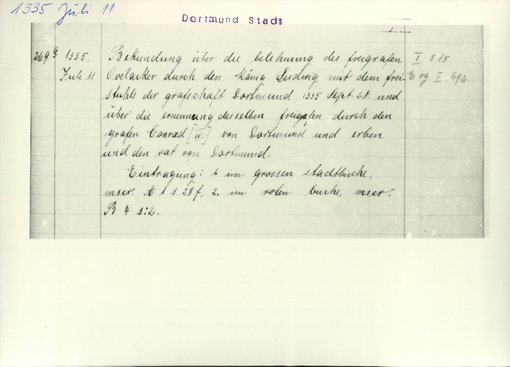 1335 Juli 11
Dortmund Stadt
269a 1335. Bekundung über die belehnung des freigrafen I 515
Juli 11 Ovelacker durch den König Ludwig mit dem frei- Erg I 692.
stuhle der grafschaft Dortmund 1335 Sept. 28. und
über die ernennung desselben freigrafen durch den
grafen Conrad [IV.] von Dortmund und erben
und den rat von Dortmund.
Eintragung: 1. im grossen stadtbuche,
mscr. A 1 s. 28 f, 2. im roten buche, mscr.
B 4 s. 2.